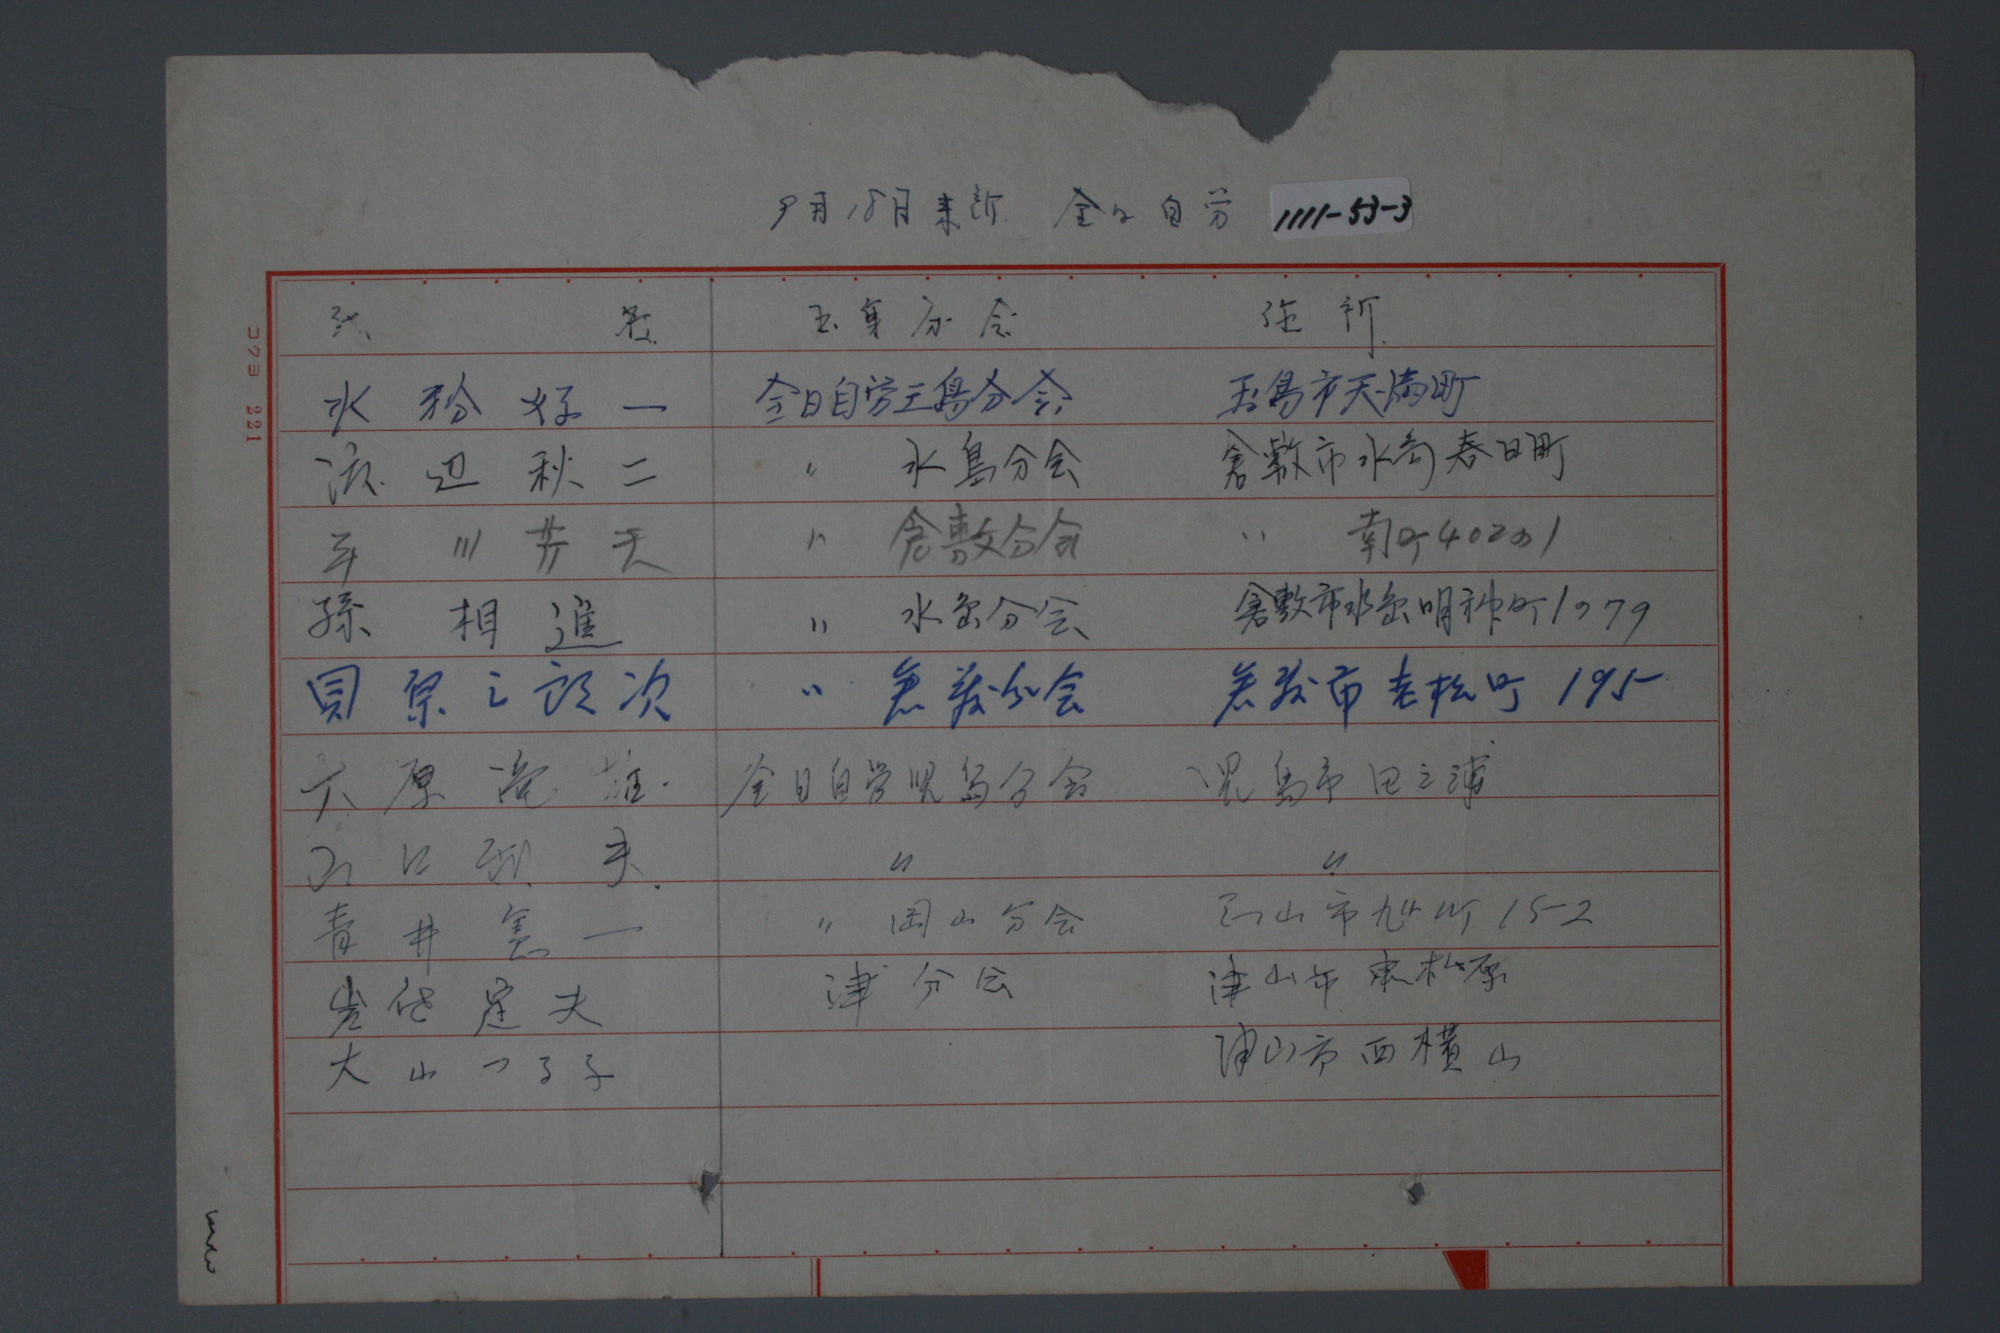 9月18日来所 全日自労
1111-53-3
コクヨ 221
分会
水粉好一 全日自労玉島分会 玉島市天満町
渡辺秋二 〃 水島分会 倉敷市水島春日町
平川芳夫 〃 倉敷分会 〃 南町402の1
孫相進 〃 水島分会 倉敷市水島明神町1079
貝原三郎次 〃 倉敷分会 倉敷市老松町195
大原 雄 全日自労児島分会 児島市田之浦
山口 夫 〃 〃
青井憲一 〃 岡山分会 岡山市 町15-2
夫 津分会 津山市東松原
大山つる子 津山市西横山